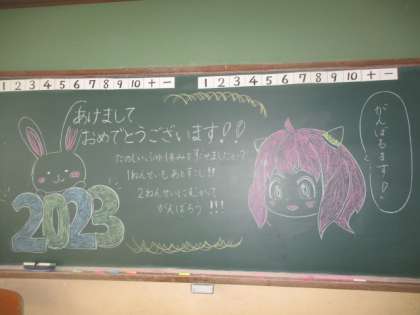 1 2 3 4 5 6 7 8 9 10 + −
1 2 3 4 5 6 7 8 9 10 + −
あけまして
おめでとうございます!!
たのしいふゆ休みをすごせましたか?
1ねんせいもあとすこし!!
2ねんせいにむかって
がんばろう!!!
2023
がんばるます!